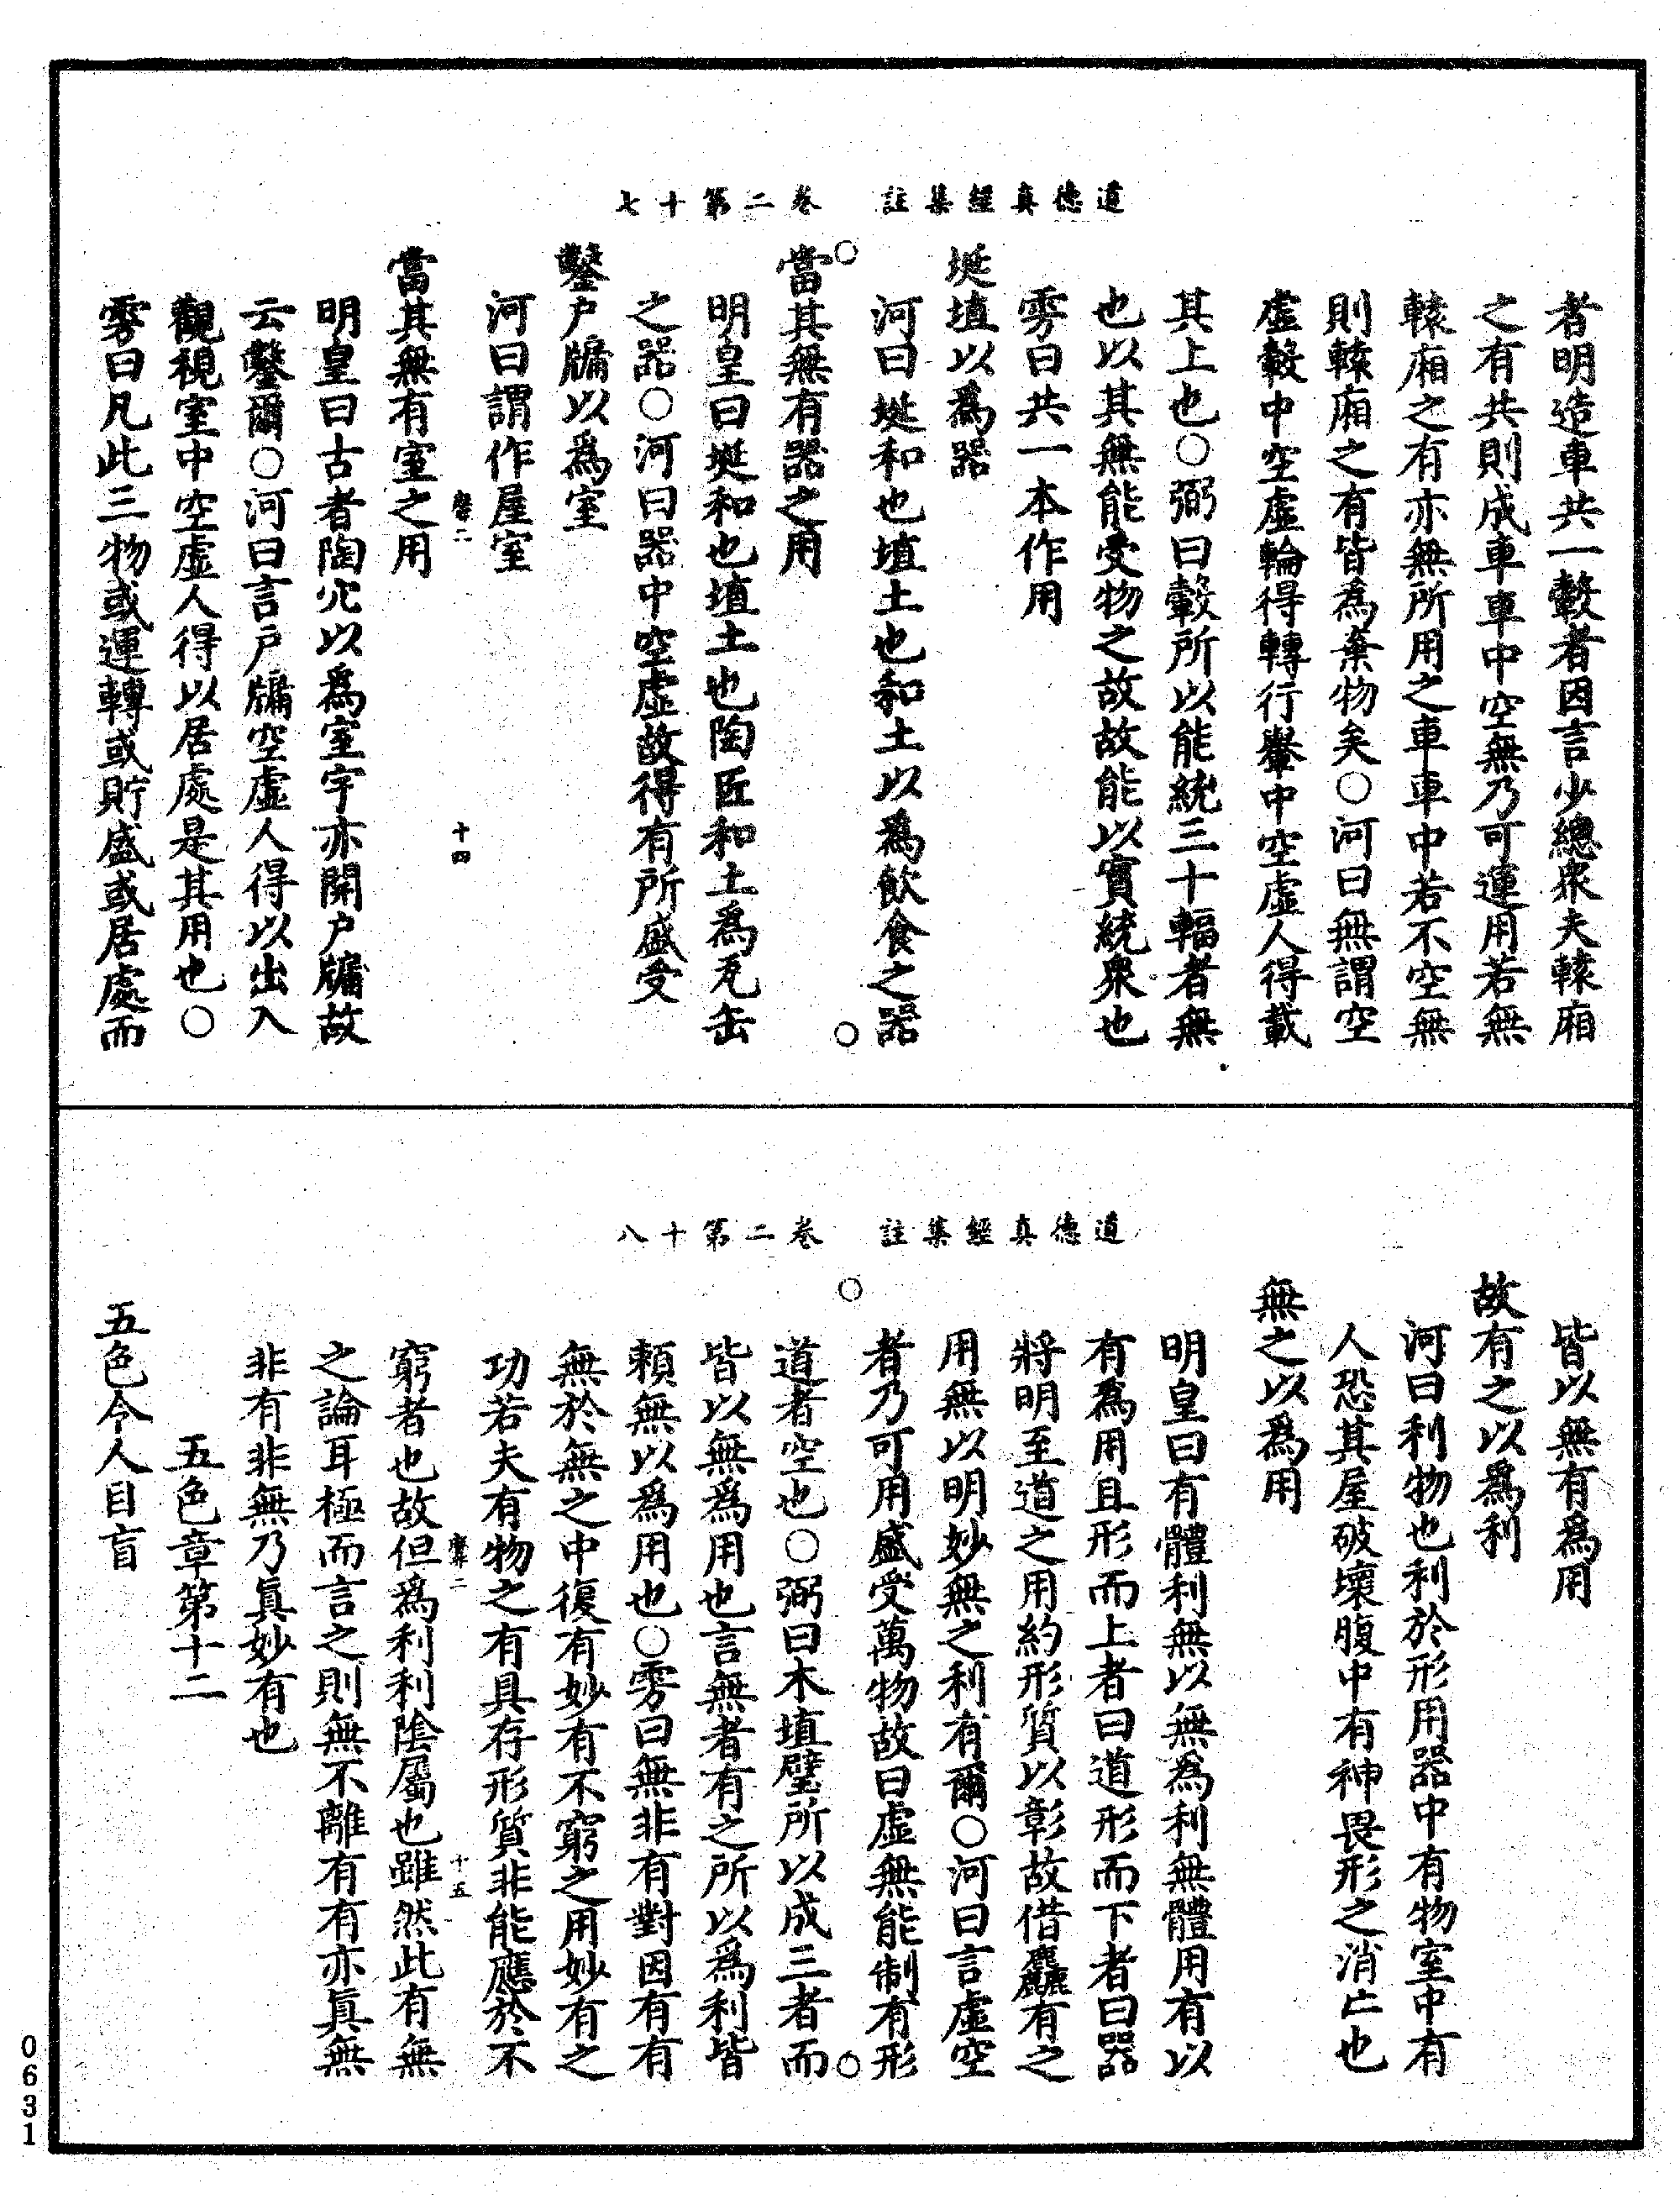 道德真經集註　卷二第十七
者明造車共一轂者因言少總衆夫轅廂
之有共則成車車中空無乃可運用若無
轅廂之有亦無所用之車車中若不空無
則轅廂之有皆爲棄物矣○河曰無謂空
虛轂中空虛輪得轉行轝中空虛人得載
其上也○弼曰轂所以能統三十輻者無
也以其無能受物之故故能以實統衆也
雱曰共一本作用
埏埴以爲器
河曰埏和也埴土也和土以爲飲食之器
當其無有器之用
明皇曰埏和也埴土也陶匠和土爲瓦缶
之器○河曰器中空虛故得有所盛受
鑿户牖以爲室
河曰謂作屋室
十四
當其無有室之用
明皇曰古者陶穴以爲室宇亦開户牖故
云鑿爾○河曰言户牖空虛人得以出入
觀視室中空虛人得以居處是其用也○
雱曰凡此三物或運轉或貯盛或居處而
道德真經集註　卷二第十八
皆以無有爲用
故有之以爲利
河曰利物也利於形用器中有物室中有
人恐其屋破壞腹中有神畏形之消亡也
無之以爲用
明皇曰有體利無以無爲利無體用有以
有爲用且形而上者曰道形而下者曰器
將明至道之用約形質以彰故借麤有之
用無以明妙無之利有爾○河曰言虛空
者乃可用盛受萬物故曰虛無能制有形
道者空也○弼曰木埴壁所以成三者而
皆以無爲用也言無者有之所以爲利皆
頼無以爲用也○雱曰無非有對因有有
無於無之中復有妙有不窮之用妙有之
功若夫有物之有具存形質非能應於不
十五
窮者也故但爲利利陰屬也雖然此有無
之論耳極而言之則無不離有有亦眞無
非有非無乃眞妙有也
五色章第十二
五色令人目盲
0631